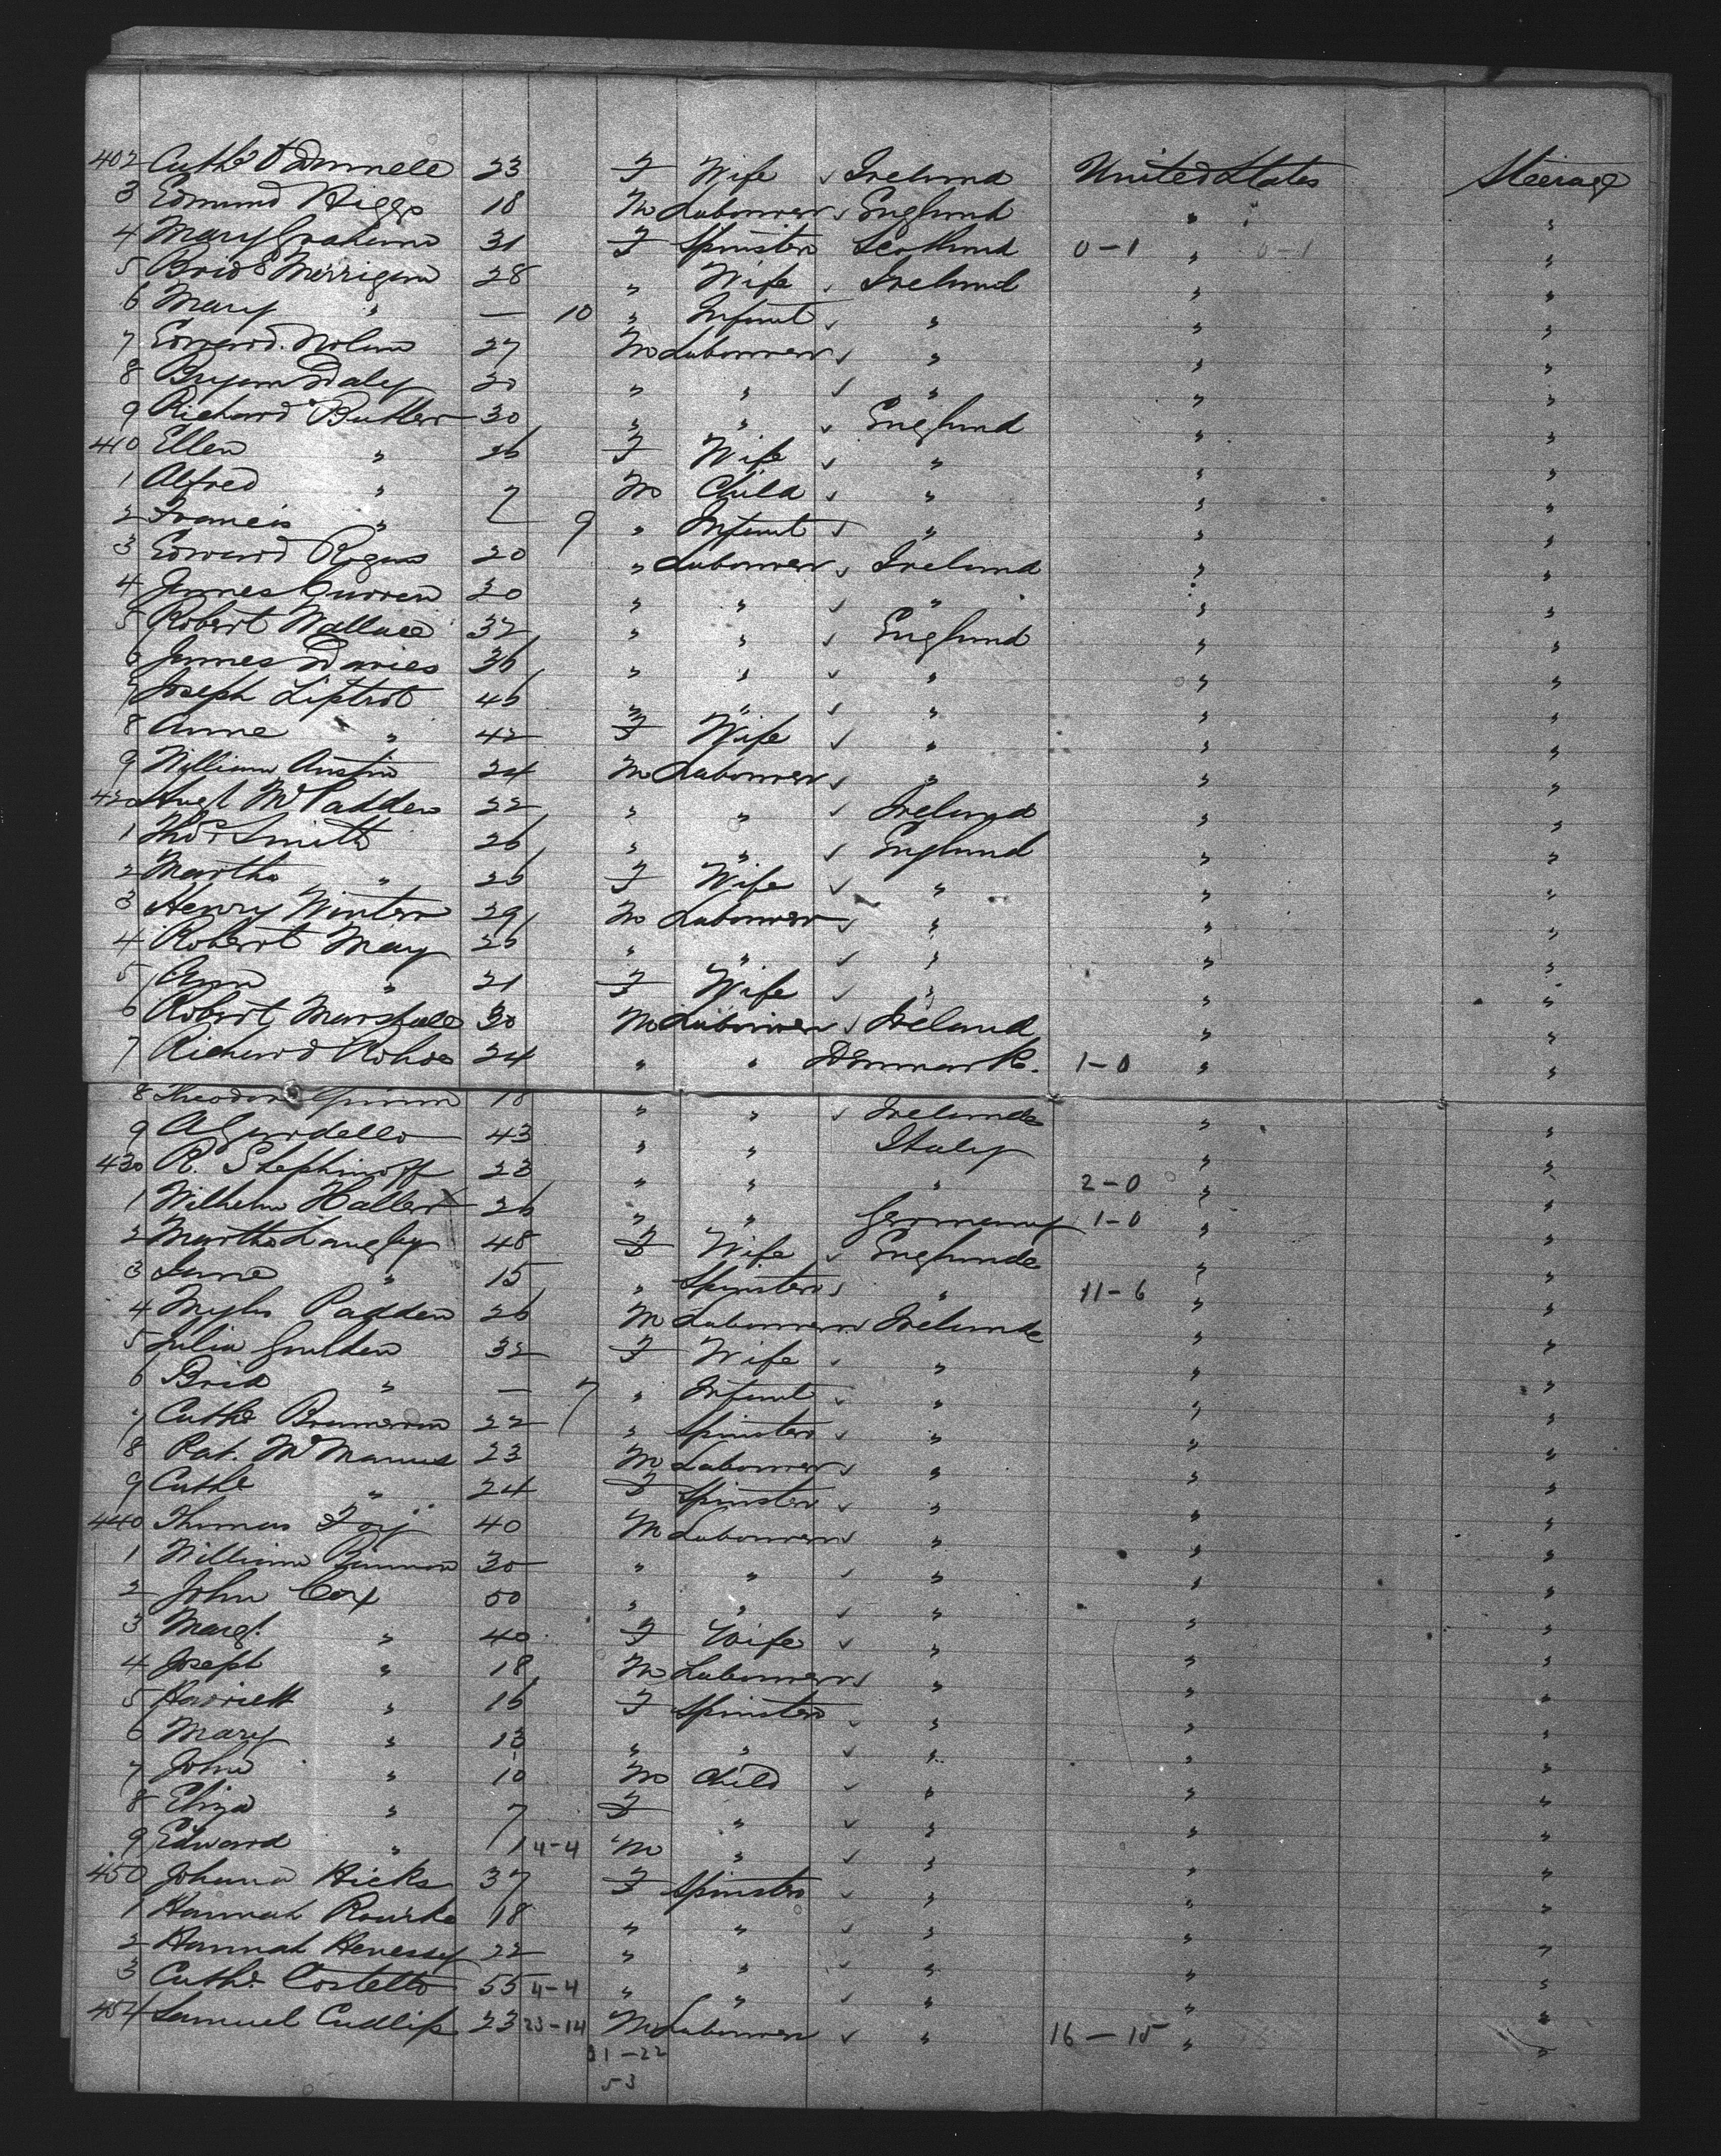 402 Cathe O'Donnell 23 F Wife ✓ Ireland United States Steerage
3 Edmund Higgs 18 M Labourer ✓ England " "
4 Mary Graham 31 F Spinster Scotland 0-1 " 0-1 "
5 Bridt Merrigan 28 " Wife ✓ Ireland " "
6 Mary " — 10 " Infant ✓ " " "
7 Edward Nolan 27 M Labourer ✓ " " "
8 Bryan Daley 20 " " ✓ " " "
9 Richard Butler 30 " " ✓ England " "
410 Ellen " 26 F Wife ✓ " " "
1 Alfred " 7 M Child ✓ " " "
2 Francis " — 9 " Infant ✓ " " "
3 Edward Rogers 20 " Labourer ✓ Ireland " "
4 James Curren 20 " " ✓ " " "
5 Robert Wallace 32 " " ✓ England " "
6 James Davies 36 " " ✓ " " "
7 Joseph Liptrot 46 " " ✓ " " "
8 Anne " 42 F Wife ✓ " " "
9 William Austin 24 M Labourer ✓ " " "
420 Hugh McPadden 22 " " ✓ Ireland " "
1 Thos Smith 26 " " ✓ England " "
2 Martha " 26 F Wife ✓ " " "
3 Henry Winter 29 M Labourer ✓ " " "
4 Robert May 25 " " ✓ " " "
5 Ann " 21 F Wife ✓ " " "
6 Robert Marshall 30 M Labourer ✓ Ireland " "
7 Richard 24 " " Denmark. 1-0 " "
8 Theodore 18 " " ✓ Ireland " "
9 43 " " Italy " "
430 R. Stephinoff 23 " " " 2-0 " "
1 Wilhelm Haller 26 " " Germany 1-0 " "
2 Martha Langley 48 F Wife ✓ England " "
3 Jane " 15 " Spinster ✓ " 11-6 " "
4 Myles Padden 26 M Labourer ✓ Ireland " "
5 Julia Goulden 32 F Wife ✓ " " "
6 Brid " — 7 " Infant ✓ " " "
7 Cathe 22 " Spinster ✓ " " "
8 Pat. McManus 23 M Labourer ✓ " " "
9 Cathe " 24 F Spinster ✓ " " "
440 Thomas Foy 40 M Labourer ✓ " " "
1 William 30 " " ✓ " " "
2 John Cox 50 " " ✓ " " "
3 Margt. " 40 F Wife ✓ " " "
4 Joseph " 18 M Labourer ✓ " " "
5 Harriett " 16 F Spinster ✓ " " "
6 Mary " 13 " " ✓ " " "
7 John " 10 M Child ✓ " " "
8 Eliza " 7 F " ✓ " " "
9 Edward " 1 4-4 M " ✓ " " "
450 Johana Hicks 37 F Spinster ✓ " " "
1 Hannah Rourke 18 " " ✓ " " "
2 Hannah Henessy 22 " " ✓ " " "
3 Cathe. Costello 55 4-4 " " ✓ " " "
454 Samuel Cudlip 23 23-14 M Labourer ✓ " 16-15 " "
31-22
53